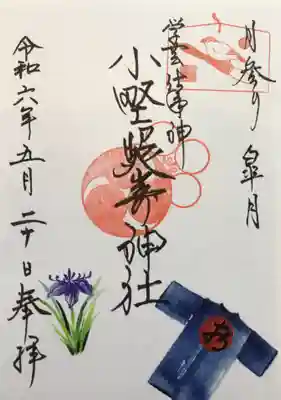 月参り 皐月
学芸仕事神
小野照嵜神社
令和六年五月二十日奉拝